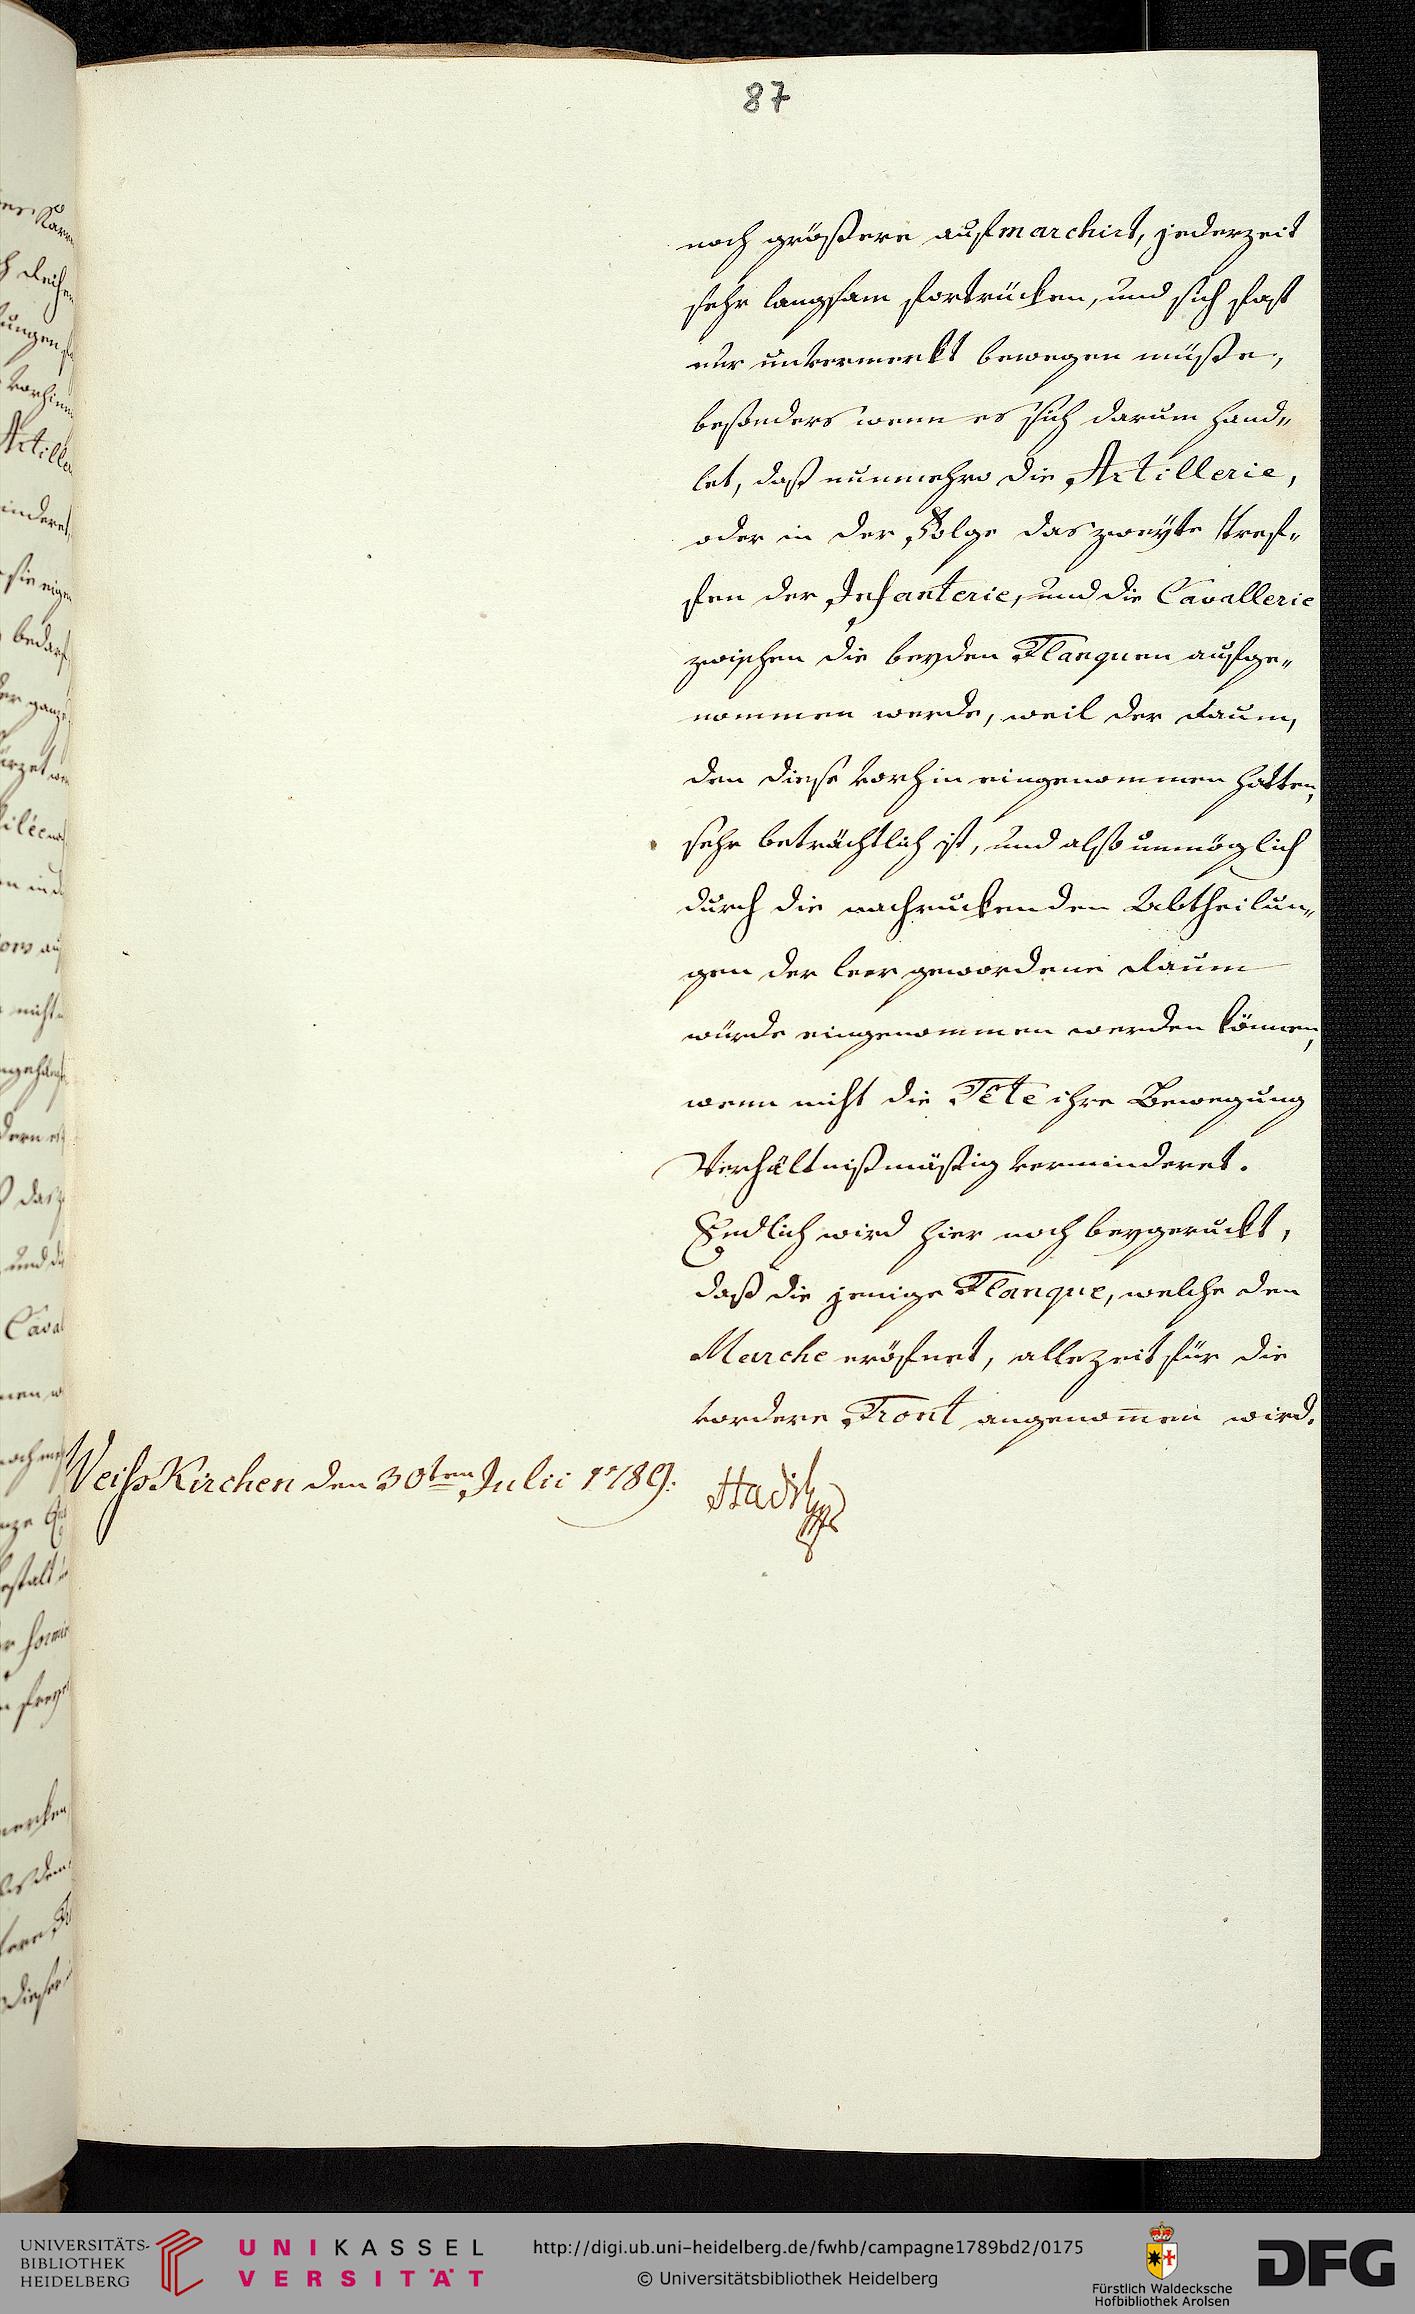 87
noch größere aufmarchirt, jederzeit
sehr langsam fortrücken, und sich fast
nur unvermerkt bewegen müße,
besonders wenn es sich darum hand„
let, daß nunmehro die Artillerie,
oder in der Folge das zweyte Tref„
fen der Infanterie, und die Cavallerie
zwischen die beyden Flanquen aufge„
nommen werde, weil der Raum,
den diese vorhin eingenommen hatten,
sehr beträchtlich ist, und also unmöglich
durch die nachruckenden Abtheilun„
gen der leer gewordene Raum
würde eingenommen werden können,
wenn nicht die Tête ihre Bewegung
Verhältnißmäßig verminderet.
Endlich wird hier noch beygeruckt,
daß die jenige Flanque, welche den
Marche eröfnet, allezeit für die
vordere Front angenom̅en wird.
WeissKirchen den 30ten Julii 1789. Hadik
UNIVERSITÄTS-
BIBLIOTHEK
HEIDELBERG
UNIKASSEL
VERSITÄT
http://digi.ub.uni-heidelberg.de/fwhb/campagne1789bd2/0175
© Universitätsbibliothek Heidelberg
Fürstlich Waldecksche
Hofbibliothek Arolsen
DFG